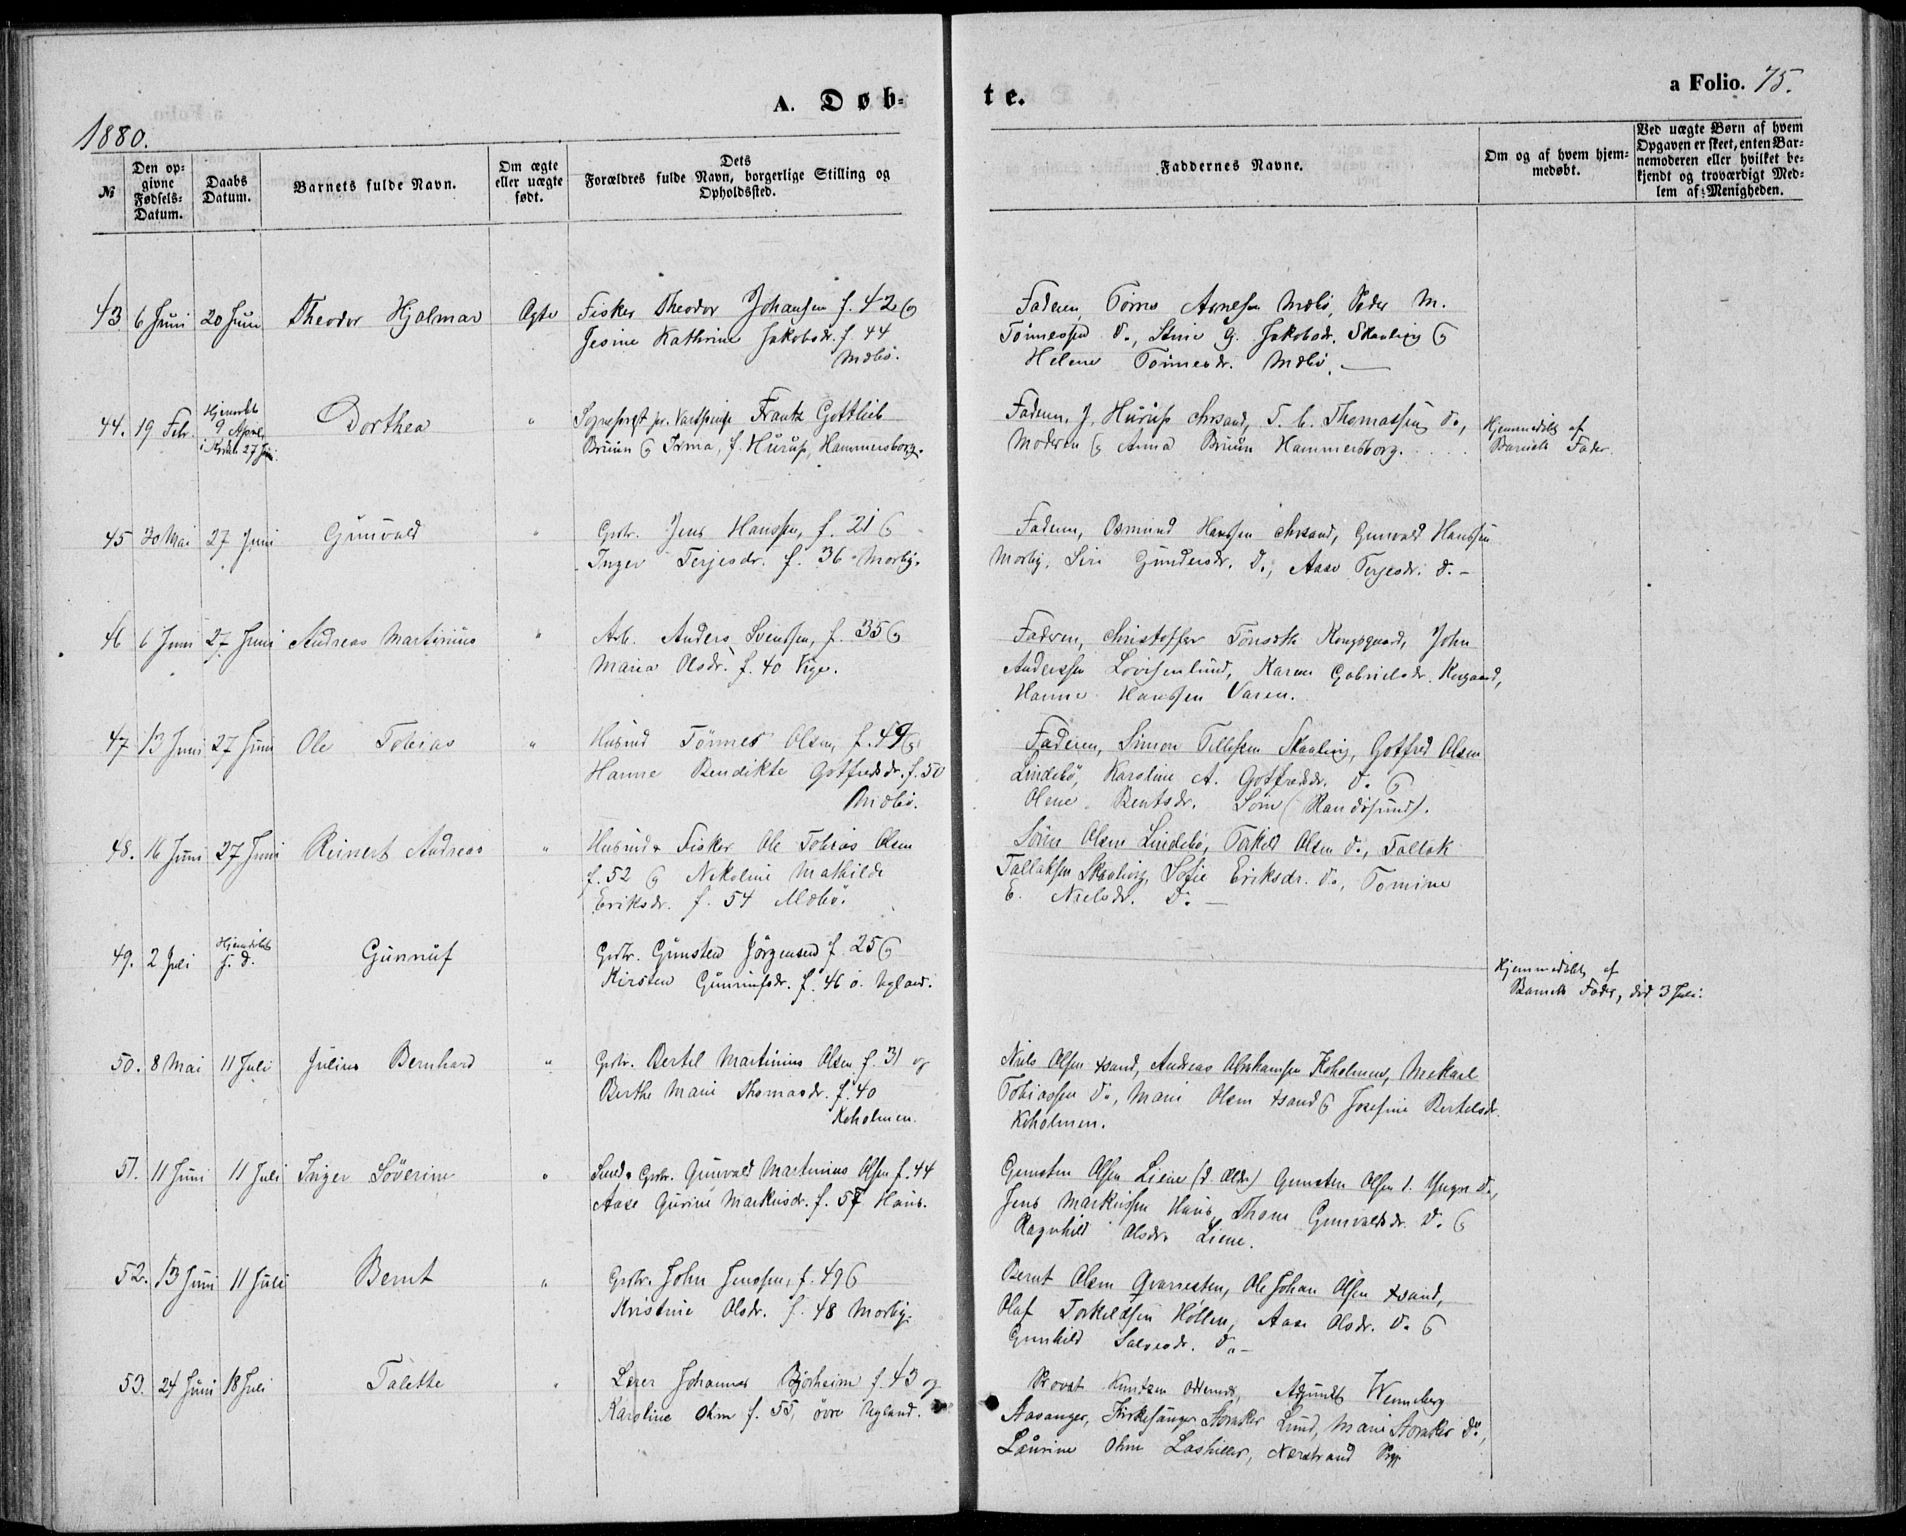 A. Døb-
te.
a Folio. 75.
1880.
№
Den op-
givne
Fødsels-
Datum.
Daabs
Datum.
Barnets fulde Navn.
Om ægte
eller uægte
født.
Dets
Forældres fulde Navn, borgerlige Stilling og
Opholdssted.
Faddernes Navne.
Om og af hvem hjem-
medøbt.
Ved uægte Børn af hvem
Opgaven er skeet, enten Bar-
nemoderen eller hvilket be-
kjendt og troværdigt Med-
lem af Menigheden.
43 6 Juni 20 Juni Theodor Hjalmar Ægte Fisker Theodor Johansen f. 42 &
Jesine Kathrine Jakobsdr. f. 44
Mæbø.
Faderen, Tørres Arnesen Mæbø, Peder M.
Tønnessen Do., Stine G. Jakobsdr. Skaaling &
Helene Tønnesdr. Mæbø.
44. 19 Febr. Hjemdbt 9 April, i Kirk. 27 Jun. Dorthea " Sognepræst Frantz Gottlieb
Bruun & Irma, f. Hurup, Hammersborg.
Faderen, J. Hurup Chrsand, T. C. Thomassen Do.,
Moderen & Anna Bruun Hammersborg.
Hjemmedøbt af
Barnets Fader.
45 30 Mai 27 Juni Gunvald " Grdr. Jens Hanssen, f. 21 &
Inger Terjesdr. f. 36 Morby.
Faderen, Osmund Hanssen Chrsand, Gunvald Hanssen
Morby, Siri Gundersdr. Do., Aase Terjesdr. Do. –
46 6 Juni 27 Juni Andreas Martinius " Arb. Anders Svenssen, f. 35 &
Maria Olsdr. f. 40 Vige.
Faderen, Christoffer Kongsgaard, John
Anderssen Lovisenlund, Karen Gabrielsdr. Kngaard,
Hanne Hanssen Varen.
47 13 Juni 27 Juni Ole Tobias " Husmd Tønnes Olsen, f. 49 &
Hanne Bendikte Gotfredsdr. f. 50
Mæbø.
Faderen, Simon Tellefsen Skaaling, Gotfred Olsen
Lindebø, Karoline A. Gotfredsdr. Do. &
Olene Bentsdr. (Randøsund).
48. 16 Juni 27 Juni Reinert Andreas " Husmd & Fisker Ole Tobias Olsen
f. 52 & Nikoline Mathilde
Eriksdr. f. 54 Mæbø.
Søren Olsen Lindebø, Terkel Olsen Do., Tallak
Tallaksen Skaaling, Sofie Eriksdr. Do., Tomine
E. Nielsdr. Do. –
49. 2 Juli Hjemdøbt s. D. Gunnuf Grdr. Gunsten Jørgensen f. 25 &
Kirsten Gunnufsdr. f. 46 ö. Ugland.
Hjemmedøbt af
Barnets Fader, död 3 Juli.
50. 8 Mai 11 Juli Julius Bernhard " Grdr. Bertel Martinius Olsen f. 31 og
Berthe Marie Thomasdr. f. 40
Koholmen.
Niels Olsen Xsand, Andreas Abrahamsen Koholmen, Mekael
Tobiassen Do., Marie Olsen Xsand & Josefine Bertelsdr.
Koholmen.
51. 11 Juni 11 Juli Inger Söverine " Grdr. Gunvald Martinius Olsen f. 44
Aase Gurine Markusdr. f. 57 Haus.
Gunsten Olsen Liene (d. Ældr) Gunsten Olsen d. Yngre Do.,
Jens Markussen Haus, Thone Gunvaldsdr. Do. &
Ragnhild Olsdr. Liene.
52. 13 Juni 11 Juli Bernt " Grdr. John Jenssen, f. 49 &
Kristine Olsdr. f. 48 Morby.
Bernt Olsen Qvarresten, Ole Johan Olsen Xsand,
Olaf Torkeldsen Höllen, Aase Olsdr. Do. &
Gunhild Salvesdr. Do. –
53. 24 Juni 18 Juli Talette " Lærer Johannes Bjorheim f. 43 og
Karoline Ohm f. 55, övre Ugland.
Provst Knutzen Oddernes, Adjunkt Wenneberg
Aasanger, Kirkesanger Stomker Lund, Marie Stomker Do.,
Laurine Ohm, Nærstrand